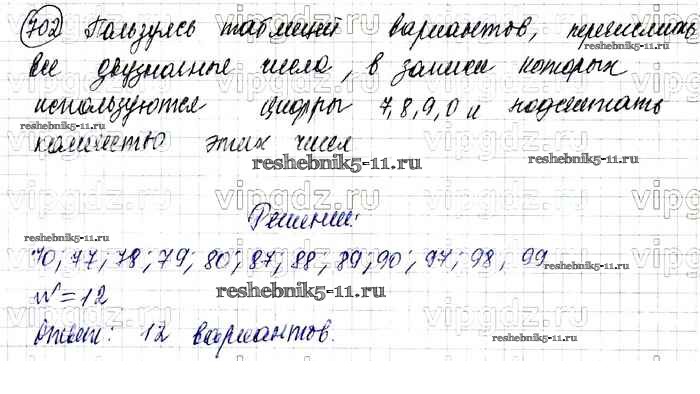 702 Пользуясь таблицей вариантов, перечислить
все двузначные числа, в записи которых
используются цифры 7, 8, 9, 0 и подсчитать
reshebnik5-11.ru
количество этих чисел
reshebnik5-11.ru
reshebnik5-11.ru
vipgdz.ru
Решение:
reshebnik5-11.ru
70; 77; 78; 79; 80; 87; 88; 89; 90; 97; 98, 99
reshebnik5-11.ru
N = 12
reshebnik5-11.ru
Ответ: 12 вариантов.
reshebnik5-11.ru